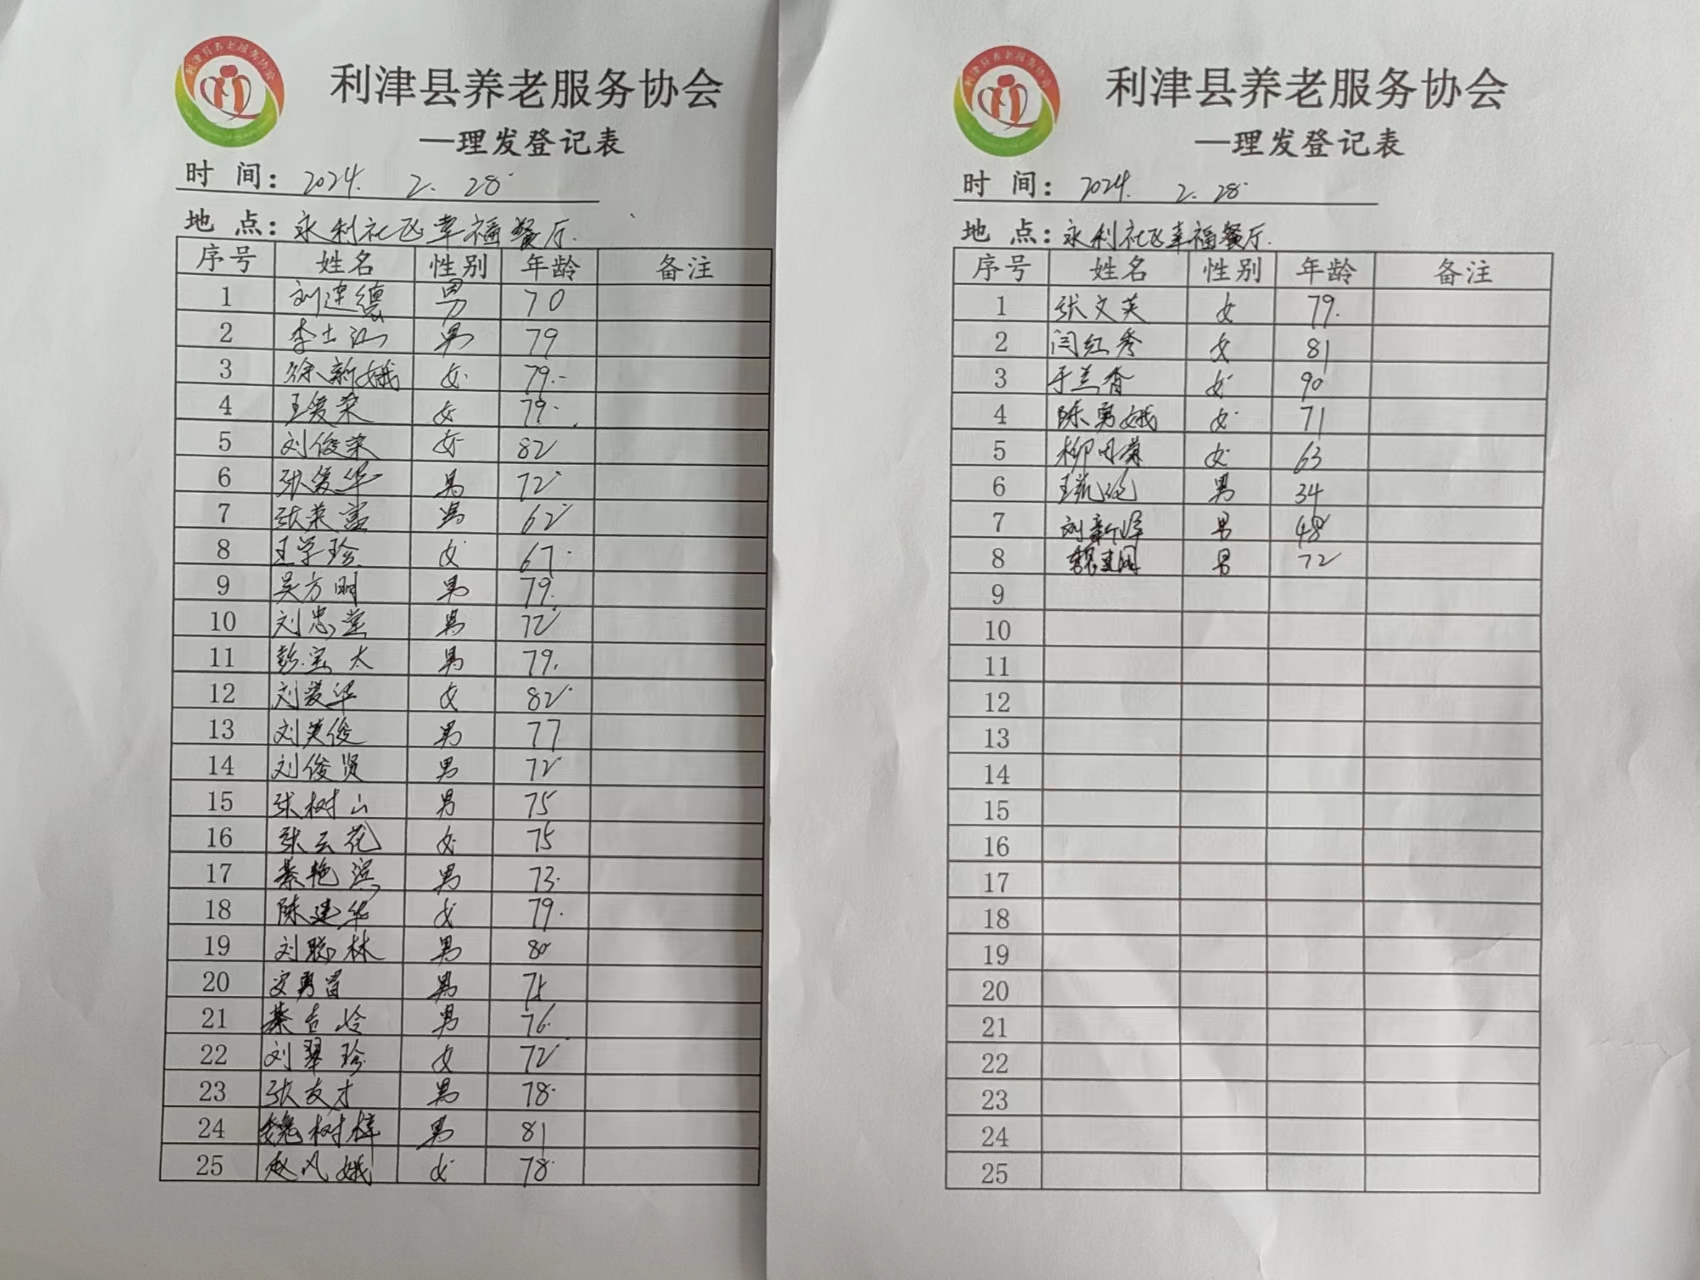 利津县养老服务协会
利津县养老服务协会
—理发登记表
时 间：2024. 2. 28.
地 点：永利社区幸福餐厅.
序号 姓名 性别 年龄 备注
1 刘建德 男 70
2 李士江 男 79
3 徐新娥 女 79.
4 王爱荣 女 79.
5 刘俊荣 女 82
6 张爱华 男 72
7 张荣富 男 62
8 王学珍 女 67.
9 吴方明 男 79.
10 刘忠堂 男 72
11 彭宝太 男 79.
12 刘爱华 女 82.
13 刘英俊 男 77
14 刘俊贤 男 72
15 张树山 男 75
16 张云花 女 75
17 綦艳滨 男 73.
18 陈建华 女 79.
19 刘聪林 男 80
20 男 75
21 綦吉岭 男 76.
22 刘翠珍 女 72
23 张友才 男 78.
24 魏树梓 男 81
25 赵风娥 女 78.
利津县养老服务协会
利津县养老服务协会
—理发登记表
时 间：2024. 2. 28.
地 点：永利社区幸福餐厅.
序号 姓名 性别 年龄 备注
1 张文英 女 79.
2 闫红秀 女 81
3 于兰香 女 90
4 陈勇娥 女 71
5 柳月 女 63
6 王 男 34
7 刘新 男 48
8 男 72
9
10
11
12
13
14
15
16
17
18
19
20
21
22
23
24
25